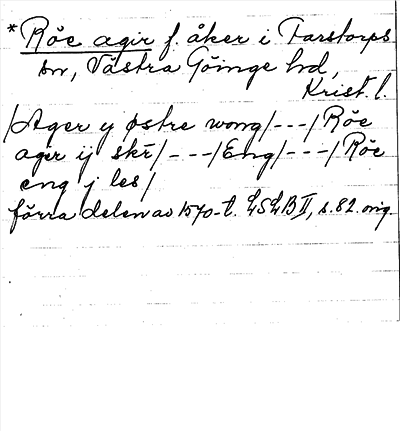 * Röe agir f. åker i Farstorps
sn, Västra Göinge hd,
Krist. l.
/Ager y østre wong/---/Röe
ager ij skr̄/---/Eng/---/Röe
eng j les/
förra delen av 1570-t. LSLB II, s. 82. orig.